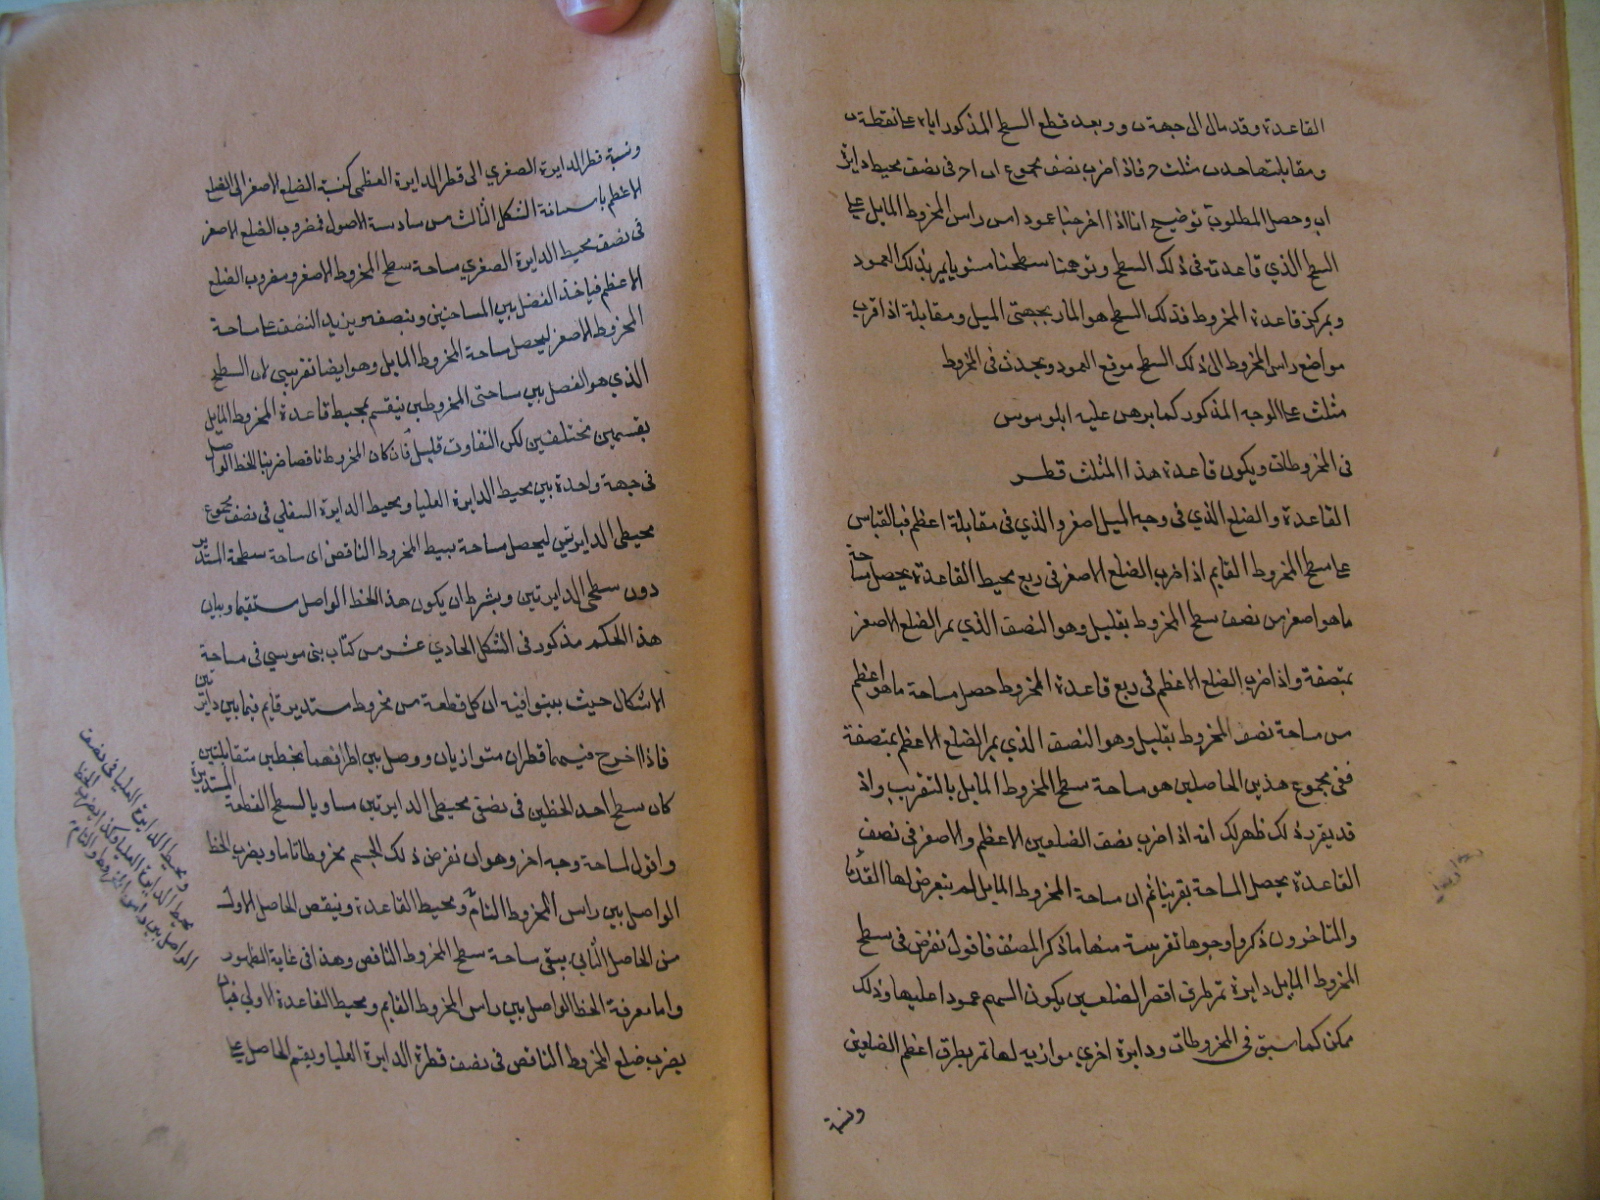 القاعدة وقد مال الى جهة ب و وبعد قطع السطح المذكور اياه على نقطة ب
ومقابلتها حدث مثلث فاذا ضرب نصف مجموع اب اح فى نصف محيط دايرة
اب وحصل المطلوب توضيح انا اذا اخرجنا عمودا من راس المخروط المايل على
السطح الذي قاعدته فى ذلك السطح وتوهمنا سطحنا مستويا يمر بذلك العمود
وبمركز قاعدة المخروط فذلك السطح هو المار بجهتى الميل ومقابلة اذ اقرب
مواضع راس المخروط الى ذلك السطح موقع العمود ويحدث فى المخروط
مثلث على الوجه المذكور كما برهن عليه ابلونيوس
فى المخروطات ويكون قاعدة هذا المثلث قطر
القاعدة والضلع الذي فى وجه الميل اصغر والذي فى مقابلة اعظم فبالقياس
على سطح المخروط القايم اذا ضرب الضلع الاصغر فى ربع محيط القاعدة يحصل مساحة
ما هو اصغر من نصف سطح المخروط بقليل وهو النصف الذي يمر الضلع الاصغر
بمتصفة واذا ضرب الضلع الاعظم فى ربع قاعدة المخروط حصل مساحة ما هو اعظم
من مساحة نصف المخروط بقليل وهو النصف الذي يمر الضلع الاعظم بمتصفة
ففى مجموع هذين الحاصلين هو مساحة سطح المخروط المايل بالتقريب واذ
قد يقرر ذلك ظهر لك انه اذا ضرب نصف الضلعين الاعظم والاصغر فى نصف
القاعدة يحصل المساحة تقريبا ثم ان مساحة المخروط المايل لم يتعرض لها القدماء
والمتاخرون ذكروا وجوها تقريبية منها ما ذكر المصنف فاقول نفرض فى سطح
المخروط المايل دايرة تمر بطرف اقصر الضلعين يكون السهم عمودا عليها وذلك
ممكن كما سبق فى المخروطات ودايرة اخري موازيه لها تمر بطرف اعظم الضلعين
ونسبة
ونسبة قطر الدايرة الصغري الى قطر الدايرة العظمى كنسبة الضلع الاصغر الى الضلع
الاعظم باستبانة الشكل الثالث من سادسة الاصول فمضروب الضلع الاصغر
فى نصف محيط الدايرة الصغري مساحة سطح المخروط الاصغر ومضروب الضلع
الاعظم فياخذ الفضل بين المساحتين وينصفه ويزيد النصف على مساحة
المخروط الاصغر ليحصل مساحة المخروط المايل وهو ايضا تقريبي لان السطح
الذي هو الفصل بين مساحتى المخروطين ينقسم بمحيط قاعدة المخروط المايل
بقسمين مختلفين لكن التفاوت قليل فان كان المخروط ناقصا ضربنا الخط الواصل
فى جهة واحدة بين محيط الدايرة العليا ومحيط الدايرة السفلي فى نصف مجموع
محيطى الدايرتين ليحصل مساحة بسيط المخروط الناقص اى مساحة سطحه المستدير
دون سطحى الدايرتين ويشرط ان يكون هذا الخط الواصل مستقيما وبيان
هذا الحكم مذكور فى الشكل الحادي عشر من كتاب بنى موسي فى مساحة
الاشكال حيث بينوا فيه ان كل قطعة من مخروط مستدير قايم فيما بين دايرتين
فاذا اخرج فيهما قطران متوازيان ووصل بين اطرافهما بخطين متقابلتين
كان سطح احد الخطين فى نصف محيطى الدايرتين مساويا لسطح القطعة المستديرة
واقول لمساحة وجه اخر وهو ان نفرض ذلك الجسم مخروطا تاما ويضرب الخط
الواصل بين راس المخروط التام ومحيط القاعدة وينقص الحاصل الاول
من الحاصل الثانى يبقى مساحة سطح المخروط الناقص وهذا فى غاية الظهور
واما معرفة الخط الواصل بين راس المخروط القايم ومحيط القاعدة الاولي فبان
يضرب ضلع المخروط الناقص فى نصف قطر الدايرة العليا ويقسم الحاصل على
ومحيط الدايرة العليا فى نصف
محيط الدايرة العليا وكذا يضرب الخط
الواصل بين راس المخروط التام